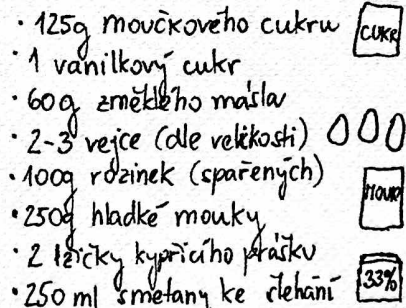 • 125g moučkového cukru CUKR
• 1 vanilkový cukr
• 60g změklého másla
• 2-3 vejce (dle velikosti)
• 100g rozinek (spařených)
• 250g hladké mouky
• 2 lžičky kypřicího prášku
• 250 ml smetany ke šlehání 33%